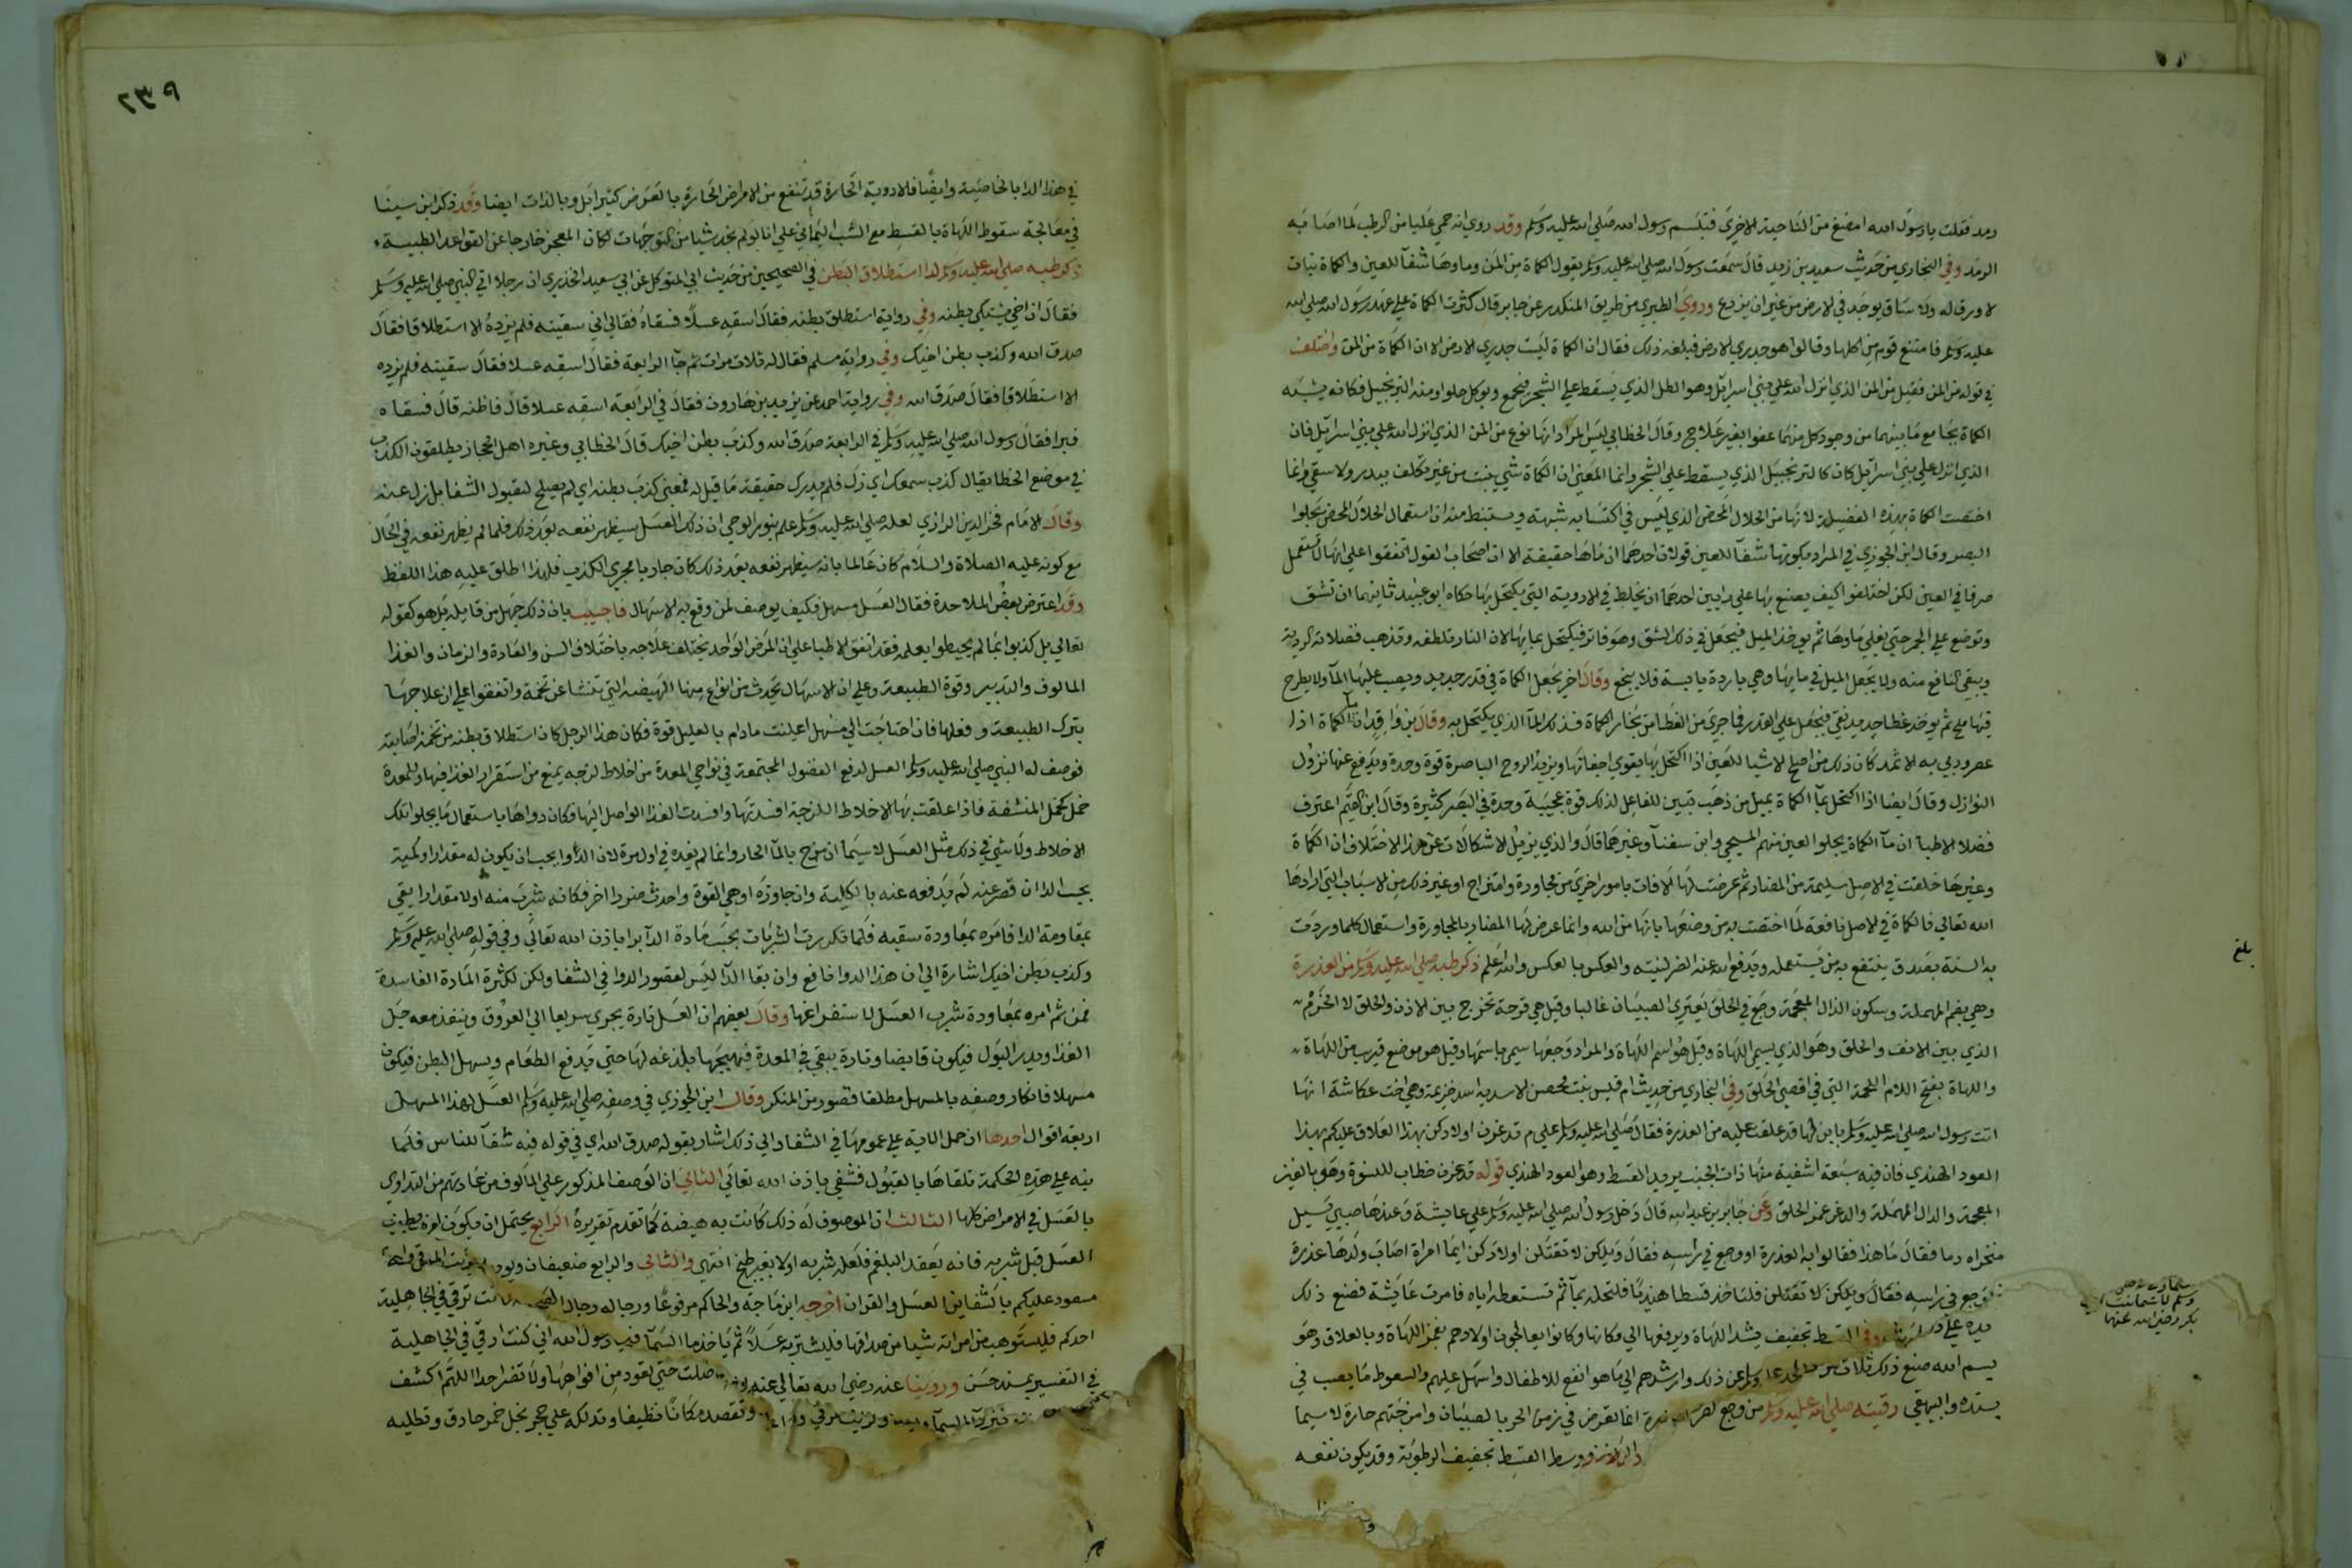 رمد فقلت يا رسول الله امضغ من الناحية الاخري فتبسم رسول الله صلي الله عليه وسلم وقد روي انه حمي عليا من الرطب لما اصابه
الرمد وفي البخاري من حديث سعيد بن زيد قال سمعت رسول الله صلي الله عليه وسلم يقول الكماة من المن وماوها شفآ للعين والكماة نبات
لا ورق له ولا ساق يوجد في الارض من غير ان يزرع وروي الطبري من طريق المنكدر عن جابر قال كثرت الكماة علي عهد رسول الله صلي الله
عليه وسلم فامتنع قوم من اكلها وقالوا هو جدري الارض فبلغه ذلك فقال ان الكماة ليست جدري الارض الا ان الكماة من المن واختلف
في قوله من المن فقيل من المن الذي انزل الله علي بني اسرآيل وهو الطل الذي يسقط علي الشجر فيجمع ويوكل حلوا ومنه الترنجبيل فكانه يشبه
الكماة بجامع ما بينهما من وجود كل منهما عفوا بغير علاج وقال الخطابي ليس المراد انها نوع من المن الذي انزل الله علي بني اسرآيل فان
الذي انزل علي بني اسرآيل كان كالترنجبيل الذي يسقط علي الشجر وانما المعني ان الكماة شي ينبت من غير تكلف ببدر ولا سقي وانما
اختصت الكماة بهذه الفضيلة لانها من الحلال المحض الذي ليس في اكتسابه شبهة ويستنبط منه ان استعمال الحلال المحض يجلوا
البصر وقال ابن الجوزي في المراد بكونها شفآ للعين قولان احدهما ان ماها حقيقة الا ان اصحاب القول اتفقوا علي انها لا تستعمل
صرفا في العين لكن اختلفوا كيف يصنع بها علي رايين احدهما ان يخلط في الادوية التي يكتحل بها حكاه ابو عبيد ثانيهما ان تشق
وتوضع علي الجمر حتي يغلي ماوها ثم يوخذ الميل فيجعل في ذلك الشق وهو فاتر فيكتحل بمايها لان النار تلطفه وتذهب فضلاته الردية
ويبقي النافع منه ولا يجعل الميل في مايها وهي باردة يابسة فلا ينجع وقال اخر يجعل الكماة في قدر جديد ويصب عليها المآ ولا يطرح
فيها ملح ثم يوخذ غطا جديد نقي فيجعل علي القدر فما جري من الغطا من بخار الكماة فذلك المآ الذي يكتحل به وقال بن واقد ان مآ الكماة اذا
عصر وربي به الاثمد كان ذلك من اصلح الاشيا للعين اذا اكتحل بها يقوي اجفانها ويزيد الروح الباصرة قوة وحدة ويدفع عنها نزول
النوازل وقال ايضا اذا اكتحل بمآ الكماة بميل من ذهب تبين للفاعل لذلك قوة عجيبة وحدة في البصر كثيرة وقال ابن القيم اعترف
فضلا الاطبا ان مآ الكماة يجلوا العين منهم المسيحي وابن سينآ وغيرهما قال والذي يزيل الاشكالات عن هذا الاختلاف ان الكماة
وغيرها خلقت في الاصل سليمة من المضار ثم عرضت لها الافات بامور اخري من مجاورة وامتزاج او غير ذلك من الاسباب التي ارادها
الله تعالي فالكماة في الاصل نافعة لما اختصت به من وصفها بانها من الله وانما عرض لها المضار بالمجاورة واستعمال كلما وردت
به السنة بصدق ينتفع به من يستعمله ويدفع الله عنه الضر لنيته والعكس بالعكس والله اعلم ذكر طبه صلي الله عليه وسلم من العذرة
وهي بضم المهملة وسكون الذال المعجمة وجع في الحلق يعتري الصبيان غالبا وقيل هي قرحة تخرج بين الاذن والحلق او الخرم
الذي بين الانف والحلق وهو الذي يسمي اللهاة وقيل هو اسم اللهاة والمراد وجعها سمي باسمها وقيل هو موضع قريب من اللهاة
واللهاة بفتح اللام اللحمة التي في اقصي الحلق وفي البخاري من حديث ام قيس بنت محصن الاسدية اسد خزيمة وهي اخت عكاشة انها
اتت رسول الله صلي الله عليه وسلم بابن لها قد علقت عليه من العذرة فقال صلي الله عليه وسلم علي م تدغرن اولادكن بهذا العلاق عليكم بهذا
العود الهندي فان فيه سبعة اشفية منها ذات الجنب يريد القسط وهو العود الهندي قوله تدغرن خطاب للنسوة وهو بالغين
المعجمة والدال المهملة والدغر غمز الحلق وعن جابر بن عبد الله قال دخل رسول الله صلي الله عليه وسلم علي عايشة وعندها صبي يسيل
منخراه دما فقال ما هذا فقالوا به العذرة او وجع في راسه فقال ويلكن لا تقتلن اولادكن ايما امراة اصاب ولدها عذرة
او وجع في راسه فقال ويلكن لا تقتلن فلتاخذ قسطا هنديا فلتحله بمآ ثم تستعطه اياه فامرت عايشة فصنع ذلك
القسط تجفيف يشد اللهاة ويرفعها الي مكانها وكانوا يعالجون اولادهم بغمز اللهاة وبالعلاق وهو
بسم الله صنع ذلك ثلاث عن ذلك وارشدهم الي ما هو انفع للاطفال واسهل عليهم والسعوط ما يصب في
بسنده والبيهقي رقيته صلي الله عليه وسلم من وجع انما تعرض في زمن الحر بالصبيان وامزجتهم حارة لا سيما
ووسط القسط تجفيف الرطوبة وقد يكون نفعه
بلغ
بكر رضي الله عنهما
٢٣٩
في هذا الدا بالخاصية وايضا فالادوية الحارة قد تنفع من الامراض الحارة بالعرض كثيرا بل وبالذات ايضا وقد ذكر ابن سينا
في معالجة سقوط اللهاة بالقسط مع الشب اليماني علي انا لو لم نجد شيا من التوجهات لكان المعجز خارجا عن القواعد الطبية
ذكر طبه صلي الله عليه وسلم لدا استطلاق البطن في الصحيحين من حديث ابي المتوكل عن ابي سعيد الخدري ان رجلا اتي النبي صلي الله عليه وسلم
فقال ان اخي يشتكي بطنه وفي رواية استطلق بطنه فقال اسقه عسلا فسقاه فقال اني سقيته فلم يزده الا استطلاقا فقال
صدق الله وكذب بطن اخيك وفي رواية مسلم فقال له ثلاث مرات ثم جآ الرابعة فقال اسقه عسلا فقال سقيته فلم يزده
الا استطلاقا فقال صدق الله وفي رواية احمد عن يزيد بن هارون فقال في الرابعة اسقه عسلا قال فاظنه قال فسقاه
فبرا فقال رسول الله صلي الله عليه وسلم في الرابعة صدق الله وكذب بطن اخيك قال الخطابي وغيره اهل الحجاز يطلقون الكذب
في موضع الخطا يقال كذب سمعك اي زل فلم يدرك حقيقة ما قيل له فمعني كذب بطنه اي لم يصلح لقبول الشفا بل زل عنه
وقال الامام فخر الدين الرازي لعله صلي الله عليه وسلم علم بنور الوحي ان ذلك العسل سيظهر نفعه بعد ذلك فلما لم يظهر نفعه في الحال
مع كونه عليه الصلاة والسلام كان عالما بانه سيظهر نفعه بعد ذلك كان جاريا مجري الكذب فلهذا اطلق عليه هذا اللفظ
وقد اعترض بعض الملاحدة فقال العسل مسهل فكيف يوصف لمن وقع به الاسهال فاجيب بان ذلك جهل من قايله بل هو كقوله
تعالي بل كذبوا بما لم يحيطوا بعلمه فقد اتفق الاطبا علي ان المرض الواحد يختلف علاجه باختلاف السن والعادة والزمان والغذا
المالوف والتدبير وقوة الطبيعة وعلي ان الاسهال يحدث من انواع منها الهيضة التي تنشا عن تخمة واتفقوا علي ان علاجها
بترك الطبيعة وفعلها فان احتاجت الي مسهل اعينت مادام بالعليل قوة فكان هذا الرجل كان استطلاق بطنه من تخمة اصابته
فوصف له النبي صلي الله عليه وسلم العسل لدفع الفضول المجتمعة في نواحي المعدة من اخلاط لزجة يمنع من استقرار الغذا فيها وللمعدة
خمل كخمل المنشفة فاذا علقت بها الاخلاط اللزجة افسدتها وافسدت الغذا الواصل اليها فكان دواها باستعمال ما يجلو تلك
الاخلاط ولا شي في ذلك مثل العسل لا سيما ان مزج بالمآ الحار وانما لم يفده في اول مرة لان الدوا يجب ان يكون له مقدار وكمية
بحسب الدا ان قصر عنه لم يدفعه عنه بالكلية وان جاوزه اوهي القوة واحدث ضررا اخر فكانه شرب منه اولا مقدارا يفي
بمقاومة الدا فامره بمعاودة سقيه فلما تكررت الشربات بحسب مادة الدآ برا باذن الله تعالي وفي قوله صلي الله عليه وسلم
وكذب بطن اخيك اشارة الي ان هذا الدوا نافع وان بقا الدآ ليس لقصور الدوا في الشفا ولكن لكثرة المادة الفاسدة
فمن ثم امره بمعاودة شرب العسل لاستفراغها وقال بعضهم ان العسل تارة يجري سريعا الي العروق وينفذ معه جل
الغذا ويدر البول فيكون قابضا وتارة يبقي في المعدة فيهيجها بلذعه لها حتي يدفع الطعام ويسهل البطن فيكون
مسهلا فانكار وصفه بالمسهل مطلقا قصور من المنكر وقال ابن الجوزي في وصفه صلي الله عليه وسلم العسل لهذا المسهل
اربعة اقوال احدها ان حمل الاية علي عمومها في الشفا والي ذلك اشار بقوله صدق الله اي في قوله فيه شفآ للناس فلما
نبه علي هذه الحكمة تلقاها بالقبول فشفي باذن الله تعالي الثاني ان الوصف المذكور علي المالوف من عادتهم من التداوي
بالعسل في الامراض كلها الثالث ان الموصوف له ذلك كانت به هيضة كما تقدم تقريره الرابع يحتمل ان يكون امره بطبخ
العسل قبل شربه فانه يعقد البلغم فلعله شربه اولا بغير طبخ انتهي والثاني والرابع ضعيفان
مسعود عليكم بالشفاين العسل والقران اخرجه ابن ماجة والحاكم مرفوعا ورجاله رجال ترقي في الجاهلية
احدكم فليستوهب من امراته شيا من صداقها فليشتر به عسلا ثم ياخذ ما السمآ رسول الله اني كنت ارقي في الجاهلية
في التفسير بسند حسن وروينا عنه رضي الله تعالي عنه حتي تعود من افواهها ولا تضر احدا اللهم اكشف
وتقصد مكانا نظيفا وتدلكه علي حجر بخل خمر حاذق وتطليه